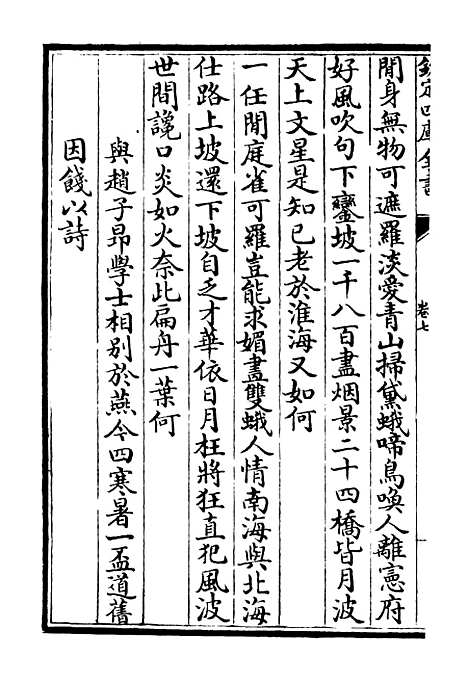 欽定四庫全書
卷七
閒身無物可遮羅淡愛青山掃黛蛾啼鳥喚人離憲府
好風吹句下鑾坡一千八百盡烟景二十四橋皆月波
天上文星是知已老於淮海又如何
一任閒庭雀可羅豈能求媚畫雙蛾人情南海與北海
仕路上坡還下坡自乏才華依日月枉將狂直犯風波
世間讒口炎如火奈此扁舟一葉何
與趙子昻學士相别於燕今四寒暑一盃道舊
因餞以詩